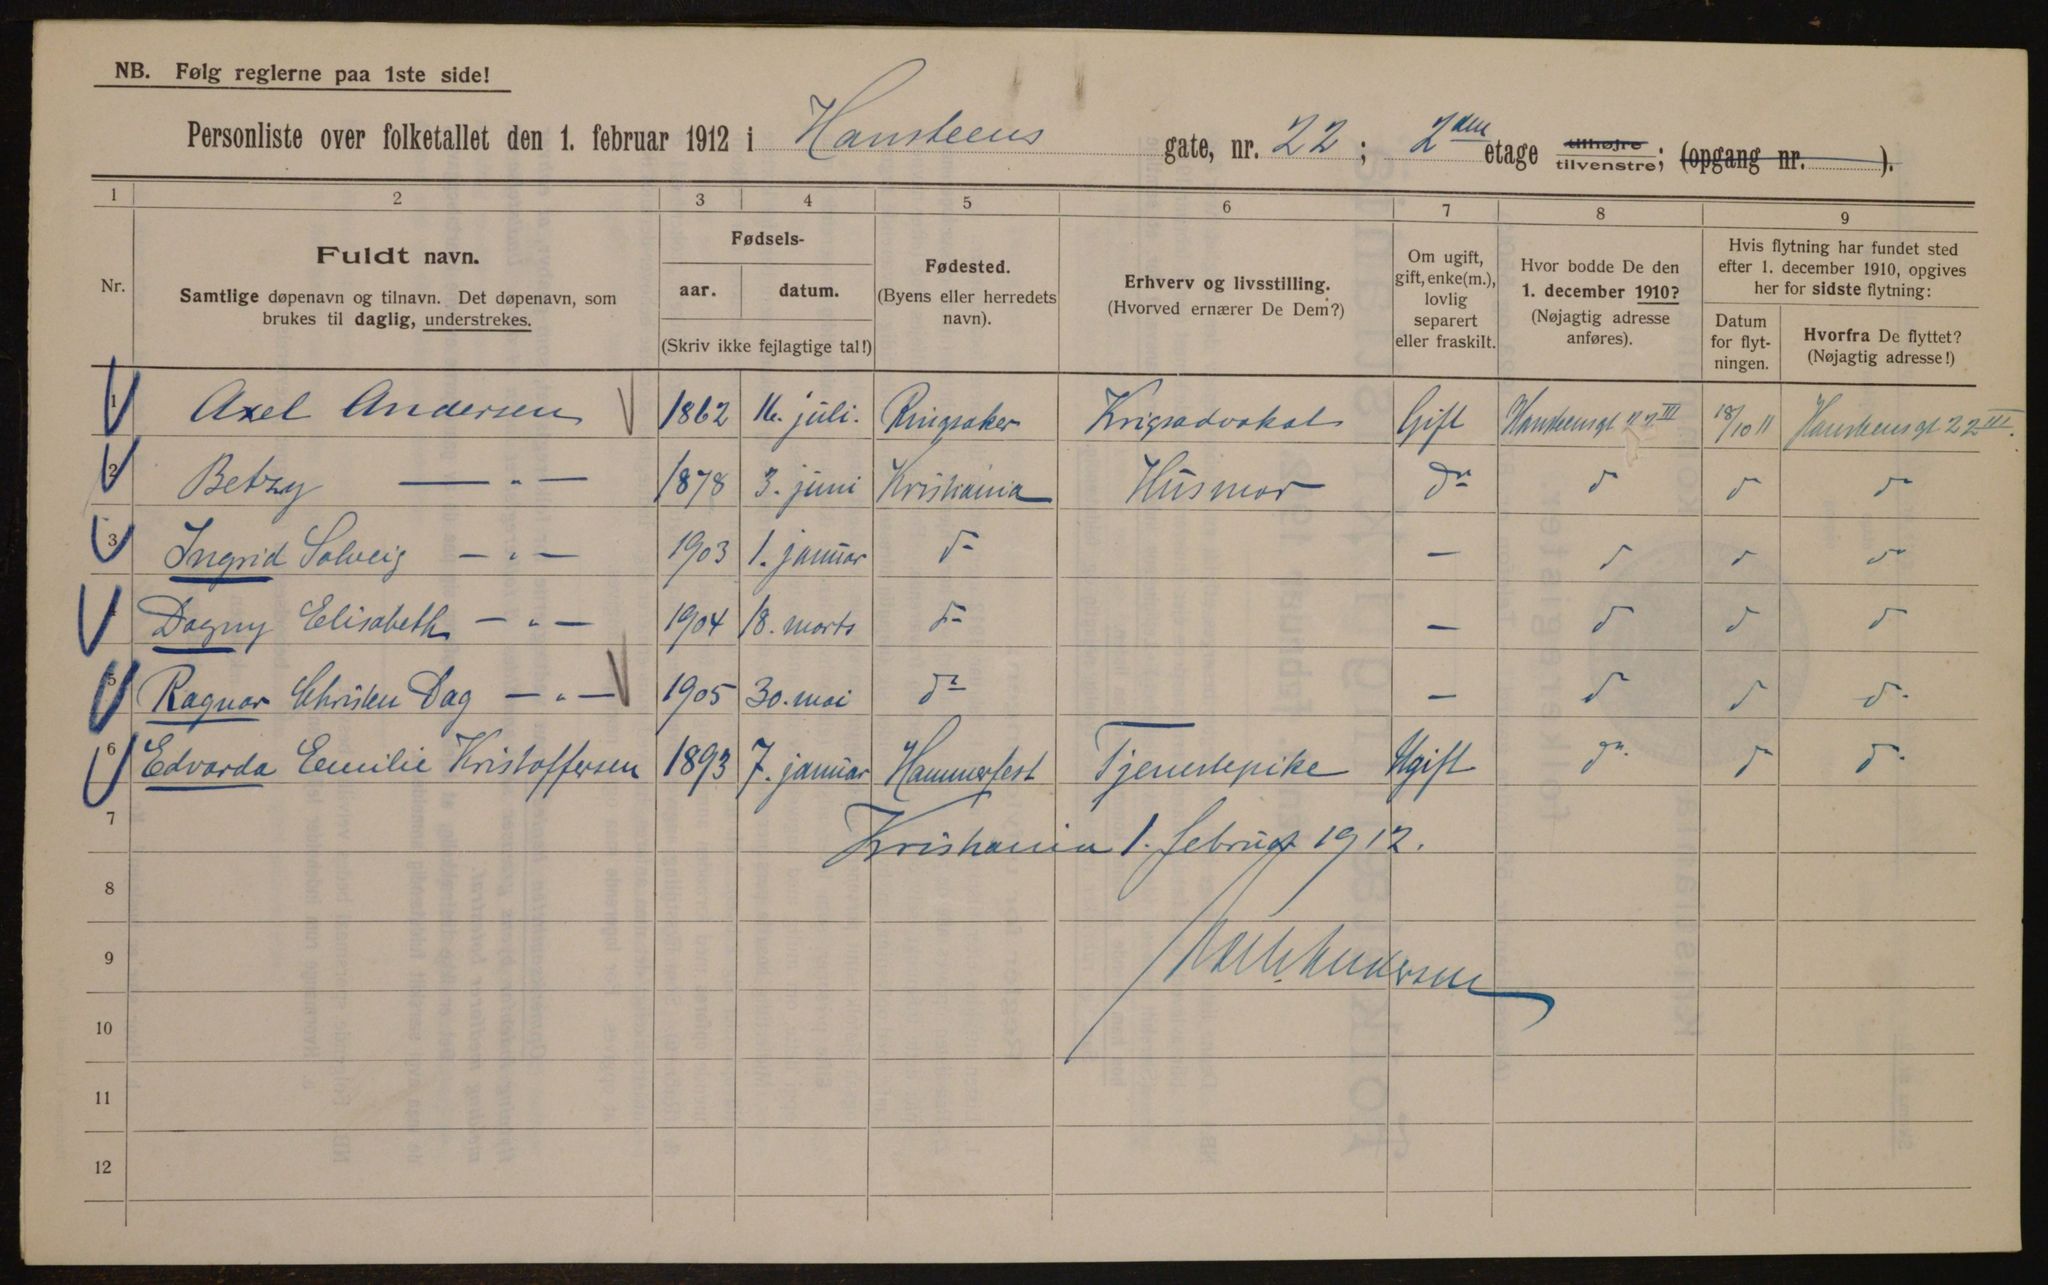 NB. Følg reglerne paa 1ste side!
Personliste over folketallet den 1. februar 1912 i Hansteens gate, nr. 22; 2den etage tilhøjre tilvenstre; (opgang nr. ).
1 2 3 4 5 6 7 8 9
Nr.
Fuldt navn.
Samtlige døpenavn og tilnavn. Det døpenavn, som
brukes til daglig, understrekes.
Fødsels-
aar. datum.
(Skriv ikke fejlagtige tal!)
Fødested.
(Byens eller herredets
navn).
Erhverv og livsstilling.
(Hvorved ernærer De Dem?)
Om ugift,
gift, enke(m.),
lovlig
separert
eller fraskilt.
Hvor bodde De den
1. december 1910?
(Nøjagtig adresse
anføres).
Hvis flytning har fundet sted
efter 1. december 1910, opgives
her for sidste flytning:
Datum
for flyt-
ningen.
Hvorfra De flyttet?
(Nøjagtig adresse!)
1 Axel Andersen 1862 16. juli. Ringsaker Krigsadvokat Gift Hansteensgt 22 III 18/10 11 Hansteensgt 22 III.
2 Betzy — " — 1878 3. juni Kristiania Husmor do d d d
3 Ingrid Solveig — " — 1903 1. januar d — d d d
4 Dagny Elisabeth — " — 1904 18. marts d — d d d
5 Ragnar Christen Dag — " — 1905 30. mai d — d d d
6 Edvarda Emilie Kristoffersen 1893 7. januar Hammerfest Tjenestepike Ugift d d d
7 Kristiania 1. februar 1912.
8
9 Andersen
10
11
12